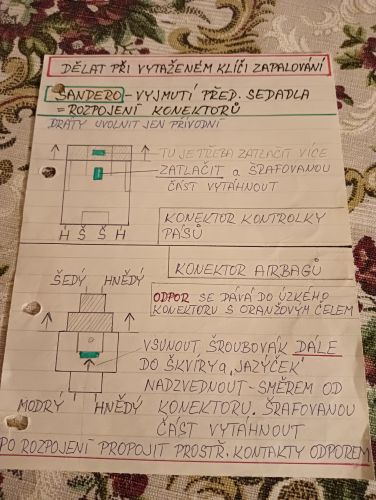 DĚLAT PŘI VYTAŽENÉM KLÍČI ZAPALOVÁNÍ
SANDERO - VYJMUTÍ PŘED. SEDADLA
- ROZPOJENÍ KONEKTORŮ
DRÁTY UVOLNIT JEN PŘÍVODNÍ
TU JE TŘEBA ZATLAČIT VÍCE
ZATLAČIT a ŠRAFOVANOU
ČÁST VYTÁHNOUT
KONEKTOR KONTROLKY
PÁSŮ
H Š Š H
KONEKTOR AIRBAGŮ
ŠEDÝ HNĚDÝ
ODPOR SE DÁVÁ DO ÚZKÉHO
KONEKTORU S ORANŽOVÝM ČELEM
VSUNOUT ŠROUBOVÁK DÁLE
DO ŠKVÍRY a "JAZÝČEK"
NADZVEDNOUT - SMĚREM OD
KONEKTORU. ŠRAFOVANOU
ČÁST VYTÁHNOUT
MODRÝ HNĚDÝ
PO ROZPOJENÍ PROPOJIT PROSTŘ. KONTAKTY ODPOREM